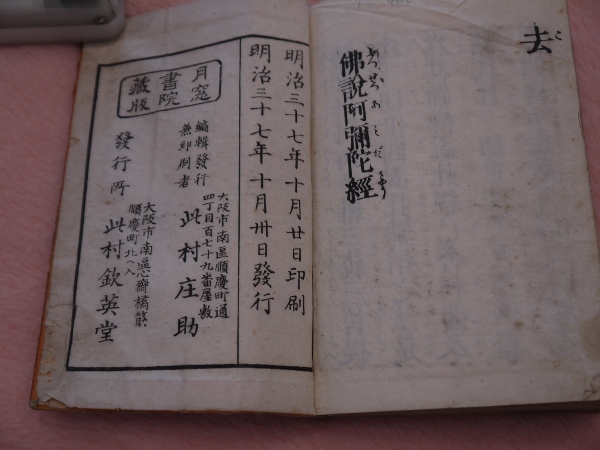 去
こ
佛說阿彌陀經
ぶつせつあみだきやう
明治三十七年十月廿日印刷
明治三十七年十月卅日發行
月窓
書院
藏版
編輯發行
兼印刷者
大阪市南區順慶町通
四丁目百七十九番屋敷
此村庄助
發行所
大阪市南區心齋橋筋
順慶町北ヘ入
此村欽英堂